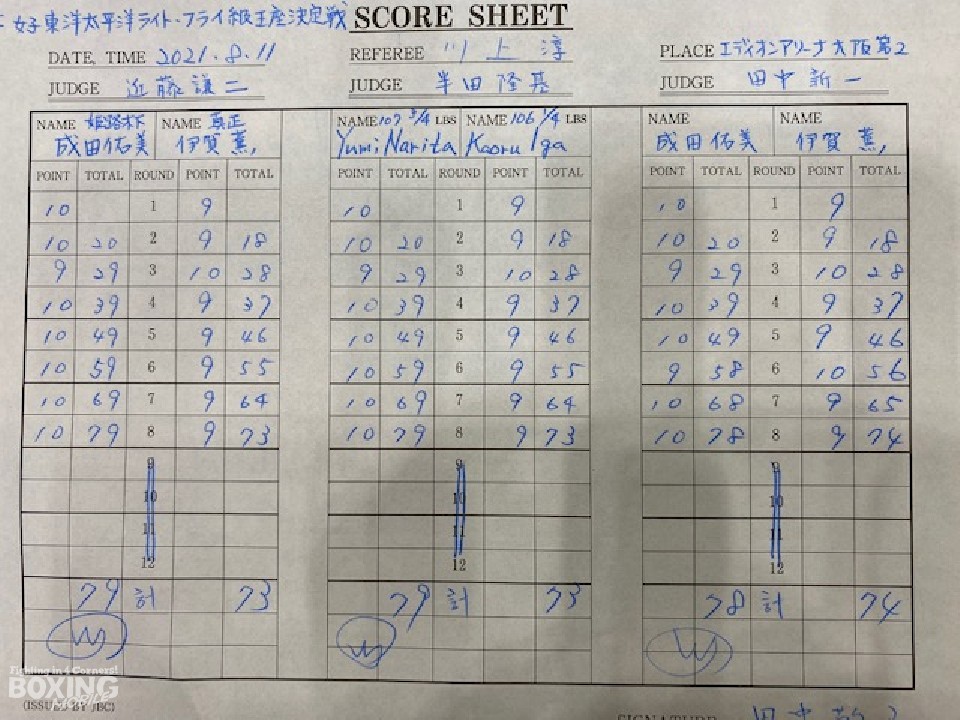 女子東洋太平洋ライト・フライ級王座決定戦 SCORE SHEET
DATE, TIME 2021.8.11 REFEREE 川上 淳 PLACE エディオンアリーナ大阪第2
JUDGE 近藤謙二 JUDGE 半田隆基 JUDGE 田中新一
NAME 姫路木下 NAME 真正 NAME 107 3/4 LBS NAME 106 1/4 LBS NAME NAME
成田佑美 伊賀薫, Yumi Narita Kaoru Iga 成田佑美 伊賀薫,
POINT TOTAL ROUND POINT TOTAL POINT TOTAL ROUND POINT TOTAL POINT TOTAL ROUND POINT TOTAL
10 1 9 10 1 9 10 1 9
10 20 2 9 18 10 20 2 9 18 10 20 2 9 18
9 29 3 10 28 9 29 3 10 28 9 29 3 10 28
10 39 4 9 37 10 39 4 9 37 10 39 4 9 37
10 49 5 9 46 10 49 5 9 46 10 49 5 9 46
10 59 6 9 55 10 59 6 9 55 9 58 6 10 56
10 69 7 9 64 10 69 7 9 64 10 68 7 9 65
10 79 8 9 73 10 79 8 9 73 10 78 8 9 74
9 9 9
10 10 10
11 11 11
12 12 12
79 計 73 79 計 73 78 計 74
Fighting in 4 Corners!
BOXING
MOBILE
(ISSUED BY JBC) SIGNATURE